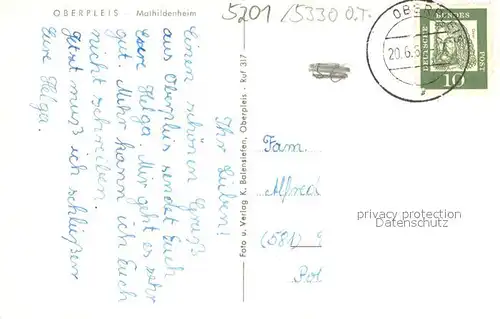 OBERPLEIS - Mathildenheim
5201/5330 O.T.
Ihr Lieben!
Einen schönen Gruß
aus Oberpleis sendet Euch
Eure Helga. Mir geht es sehr
gut. Mehr kann ich Euch
nicht schreiben.
Jetzt muß ich schließen
Eure Helga.
Foto u. Verlag K. Balensiefen, Oberpleis - Ruf 317
20.6.6
DEUTSCHE BUNDES POST
10
Fam.
Alfred
(581)
privacy protection
Datenschutz